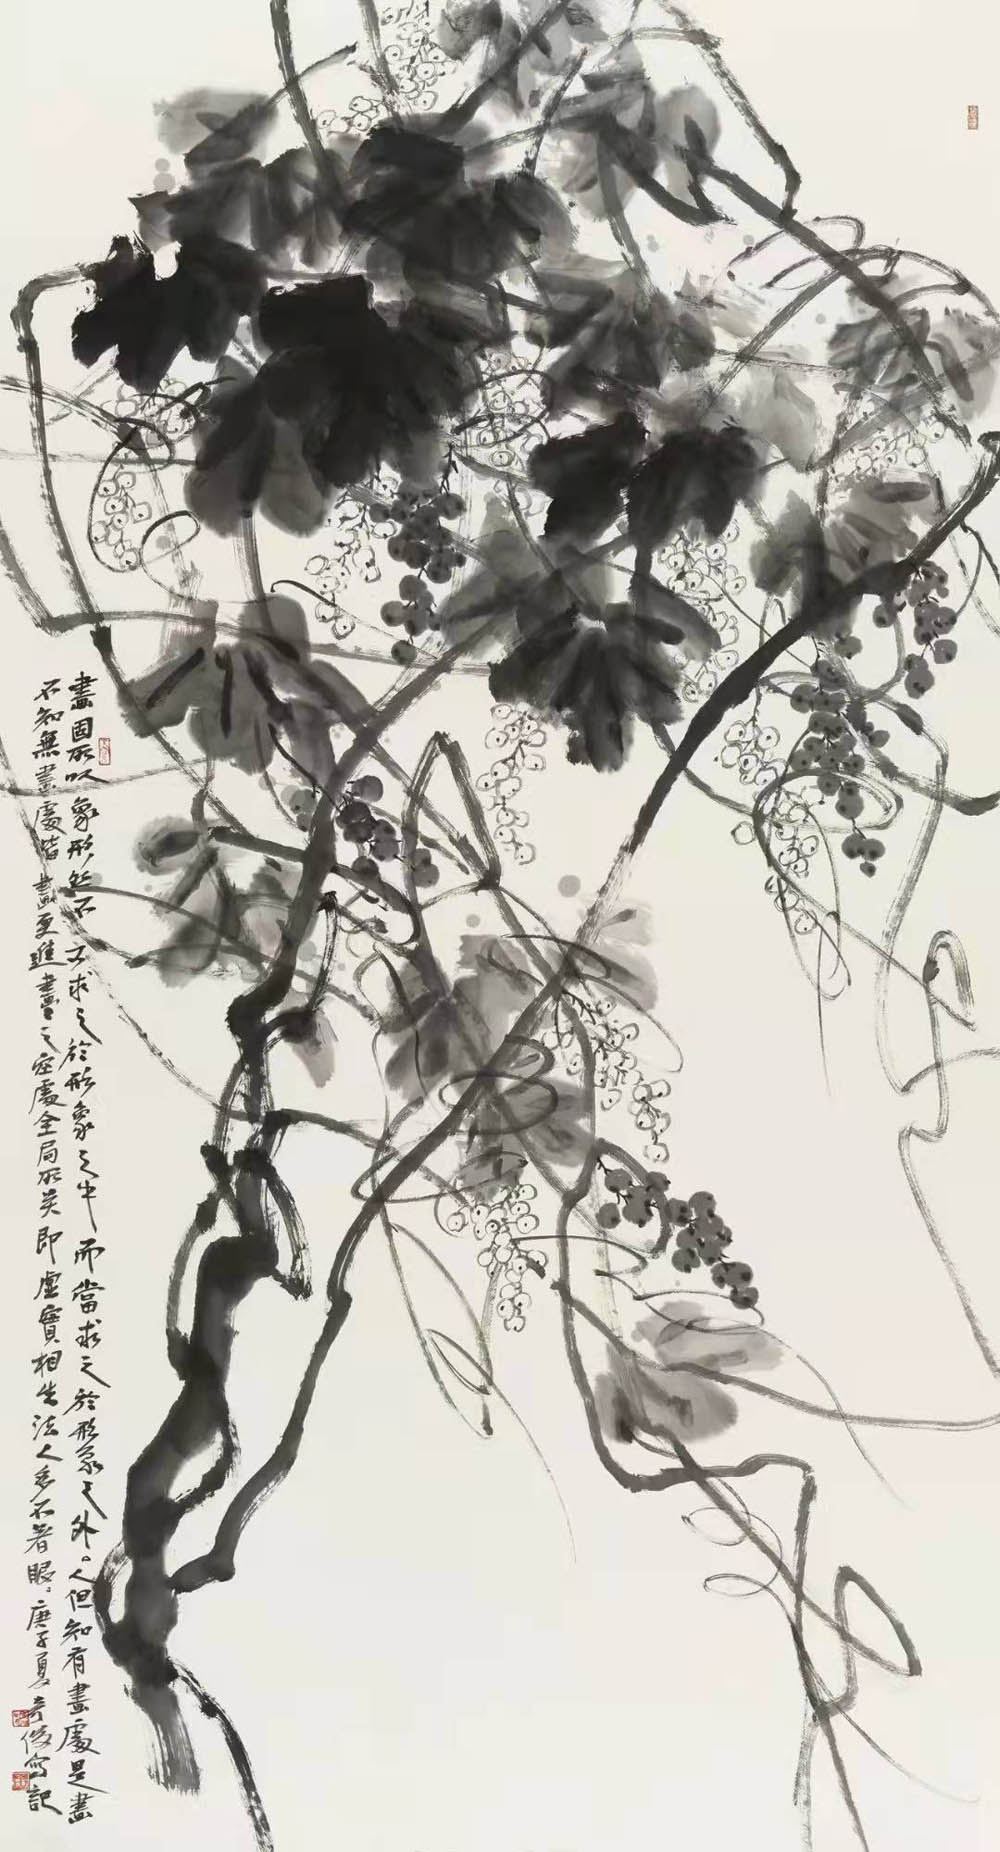 畫固所以象形然不可求之於形象之中而當求之於形象之外人但知有畫處是畫
不知無畫處皆畫更進畫之空處全局所關即虛實相生法人多不着眼庚子夏奇俊寫記